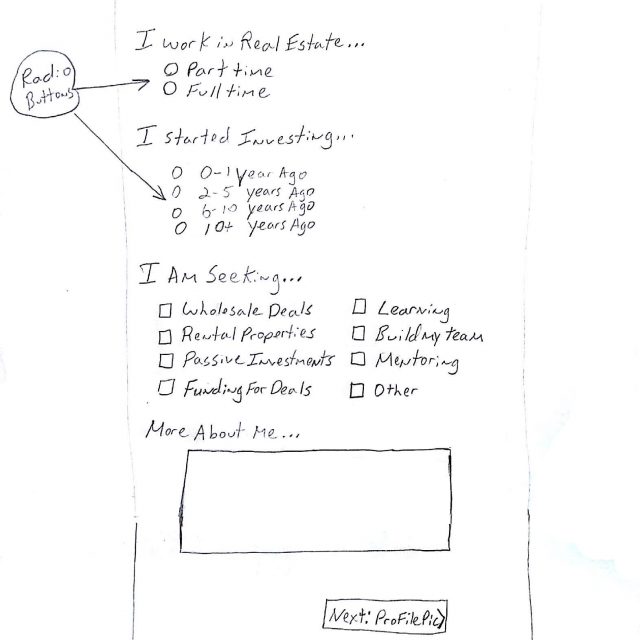 I work in Real Estate...
Part time
Full time
Radio
Buttons
I started Investing...
0-1 year Ago
2-5 years Ago
6-10 years Ago
10+ years Ago
I Am Seeking...
Wholesale Deals
Rental Properties
Passive Investments
Funding For Deals
Learning
Build My team
Mentoring
Other
More About Me...
Next: Profile Pic>